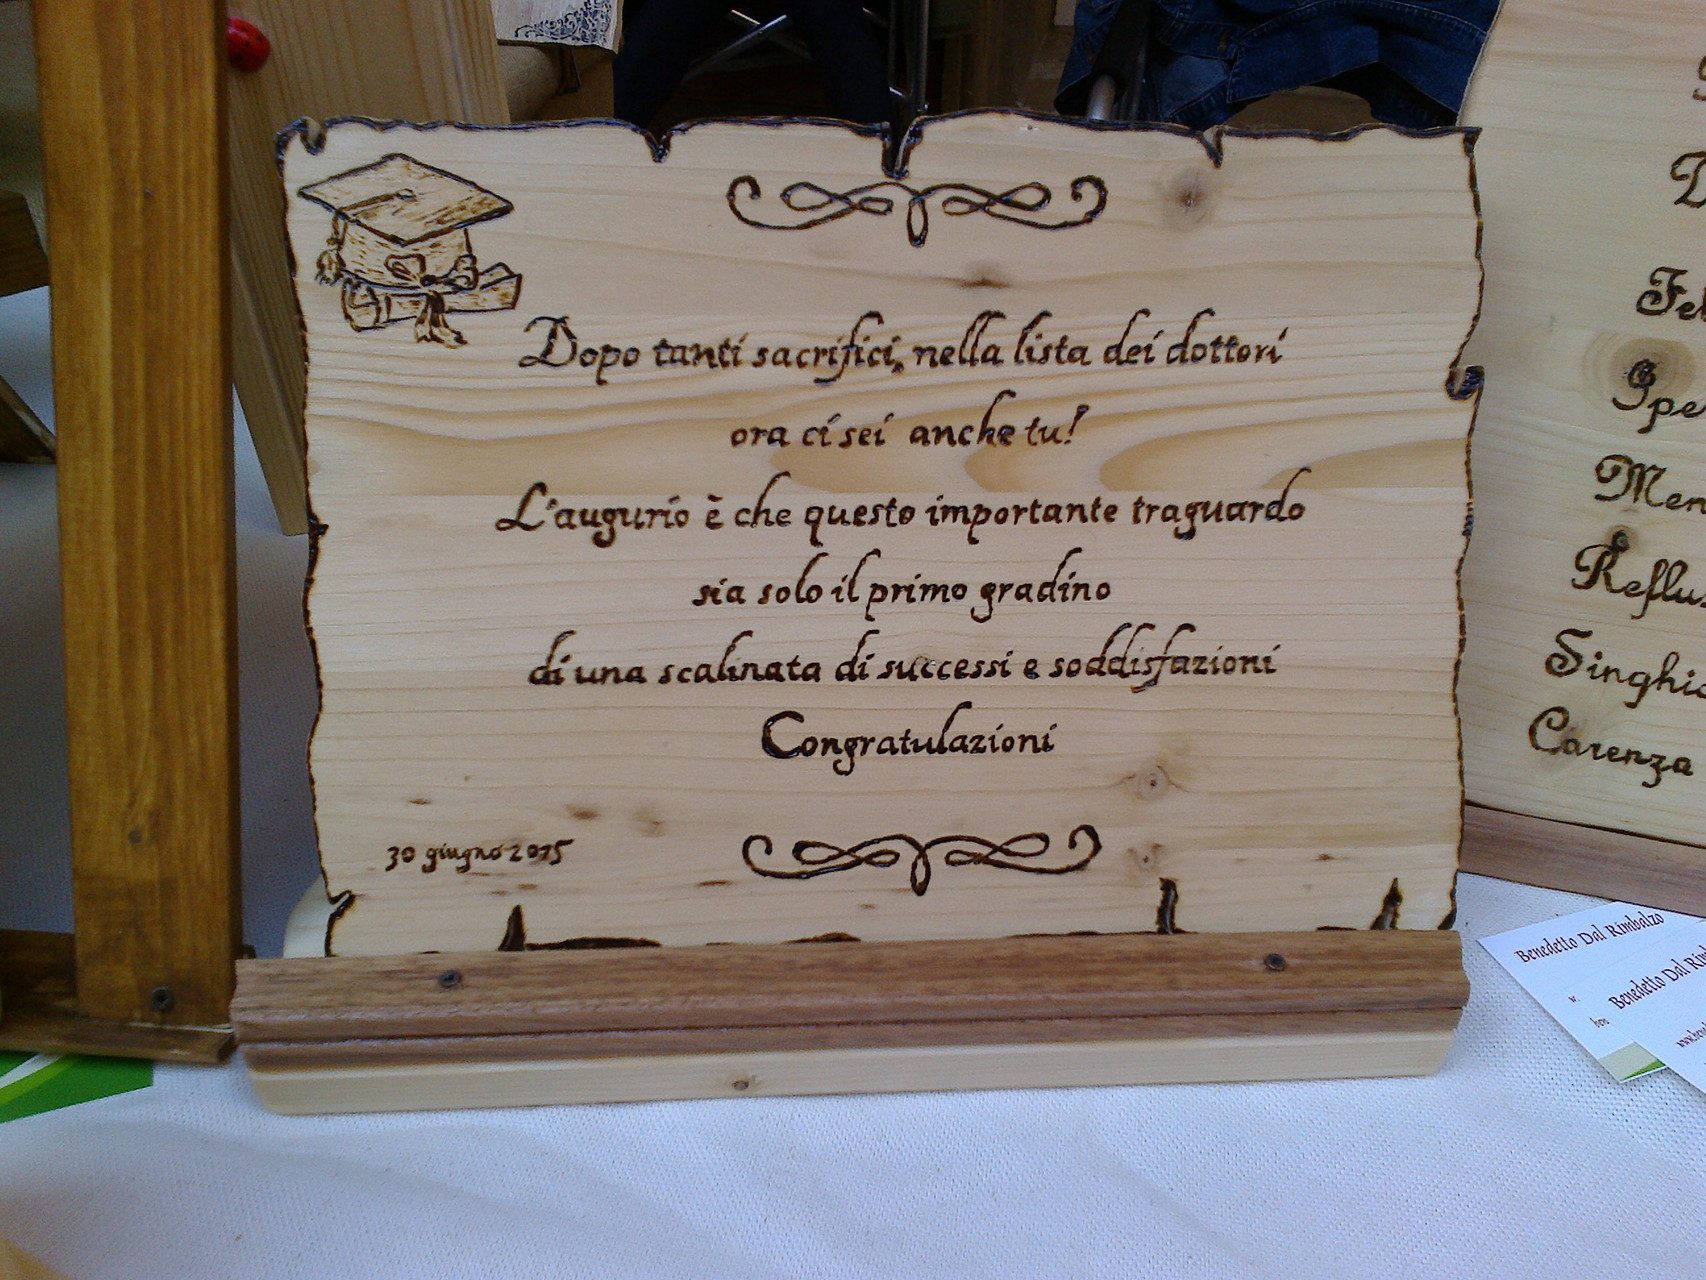 Dopo tanti sacrifici, nella lista dei dottori
ora ci sei anche tu!
L'augurio è che questo importante traguardo
sia solo il primo gradino
di una scalinata di successi e soddisfazioni
Congratulazioni
30 giugno 2015
Fel
Men
Reflu
Singhio
Carenza
Benedetto Dal Rimbalzo
Benedetto Dal Rim